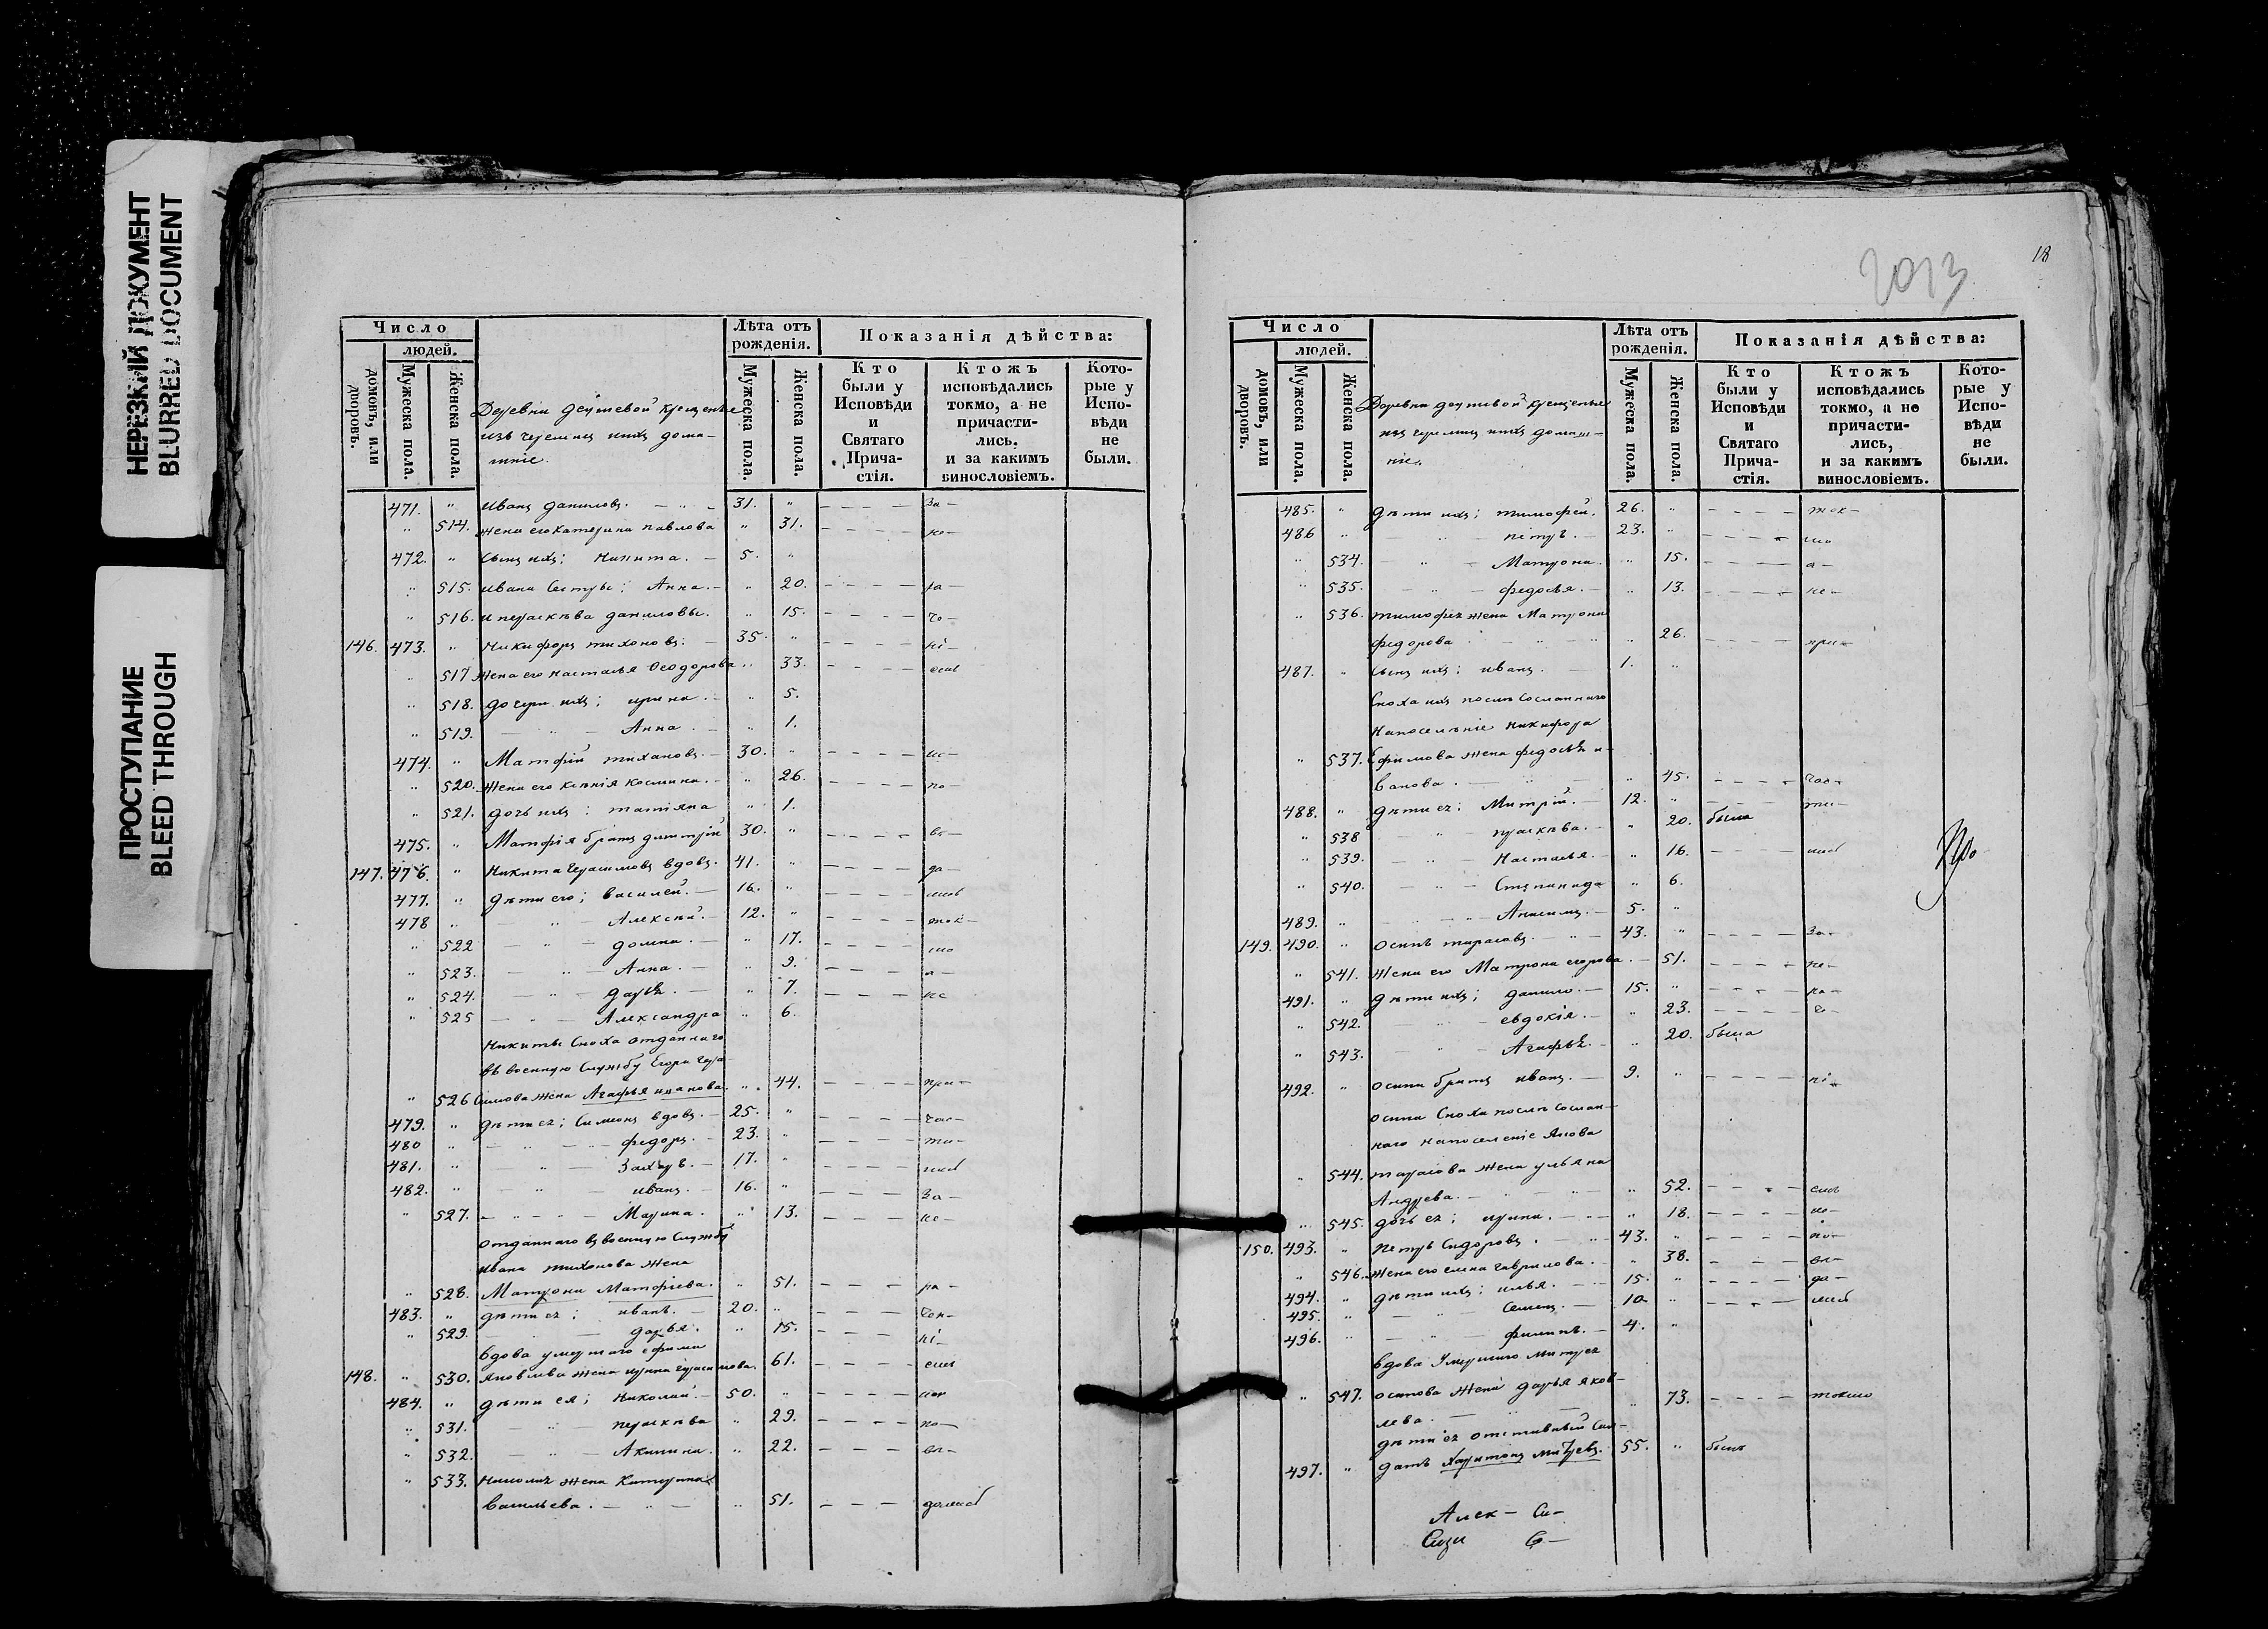 НЕРЕЗКИЙ ДОКУМЕНТ
BLURRED DOCUMENT
ПРОСТУПАНИЕ
BLEED THROUGH
Число
людей.
домовъ, или дворовъ.
Мужеска пола.
Женска пола.
Лѣта отъ рожденія.
Мужеска пола.
Женска пола.
Показанія дѣйства:
Кто были у Исповѣди и Святаго Прича-стія.
Ктожъ исповѣдались токмо, а не причасти-лись. и за какимъ винословіемъ.
Кото-рые у Испо-вѣди не были.
Деревни
изъ нихъ дома-
шніе.
471. " Иванъ Даниловъ. 31. " За-
" 514. жена его Катерина Павлова " 31.
472. " сынъ ихъ; Никита. 5. "
" 515. Ивана сестры; Анна. " 20. ра-
" 516. и Пераскѣва Даниловы. " 15. чо-
146. 473. " Никифоръ Тихоновъ. 35. " ні-
" 517 жена его Настасья Ѳеодорова " 33. емъ
" 518. дочери ихъ; Ирина. " 5.
" 519. Анна. " 1.
474. " Матфій Тихановъ. 30. " ис-
" 520. жена его Ксѣнія Космина. " 26. по-
" 521. дочь ихъ; Татіяна " 1.
475. " Матфія братъ Димитрій 30. " вѣ-
147. 476. " Никита Герасимовъ вдовъ. 41. " да-
477. " дѣти его; Василей. 16. " лись
478 " Алексѣй. 12. " ток-
" 522 Домна. " 17. мо
" 523. Анна. " 9. а-
" 524. Дарья. " 7. не
" 525 Александра " 6.
Никиты сноха отданнаго
въ военную службу Егора Гера-
" 526 симова жена Агафья Иванова. " 44. при-
479. " дѣти ея; Симіонъ вдовъ. 25. " час-
480 " Федоръ. 23. " ти-
481. " Захаръ. 17. " лись
482. " Иванъ. 16. " За-
" 527. Марина. " 13. не-
отданнаго въ военную службу
Ивана Тихонова жена
" 528. Матрона Матфіева. " 51. ра-
483. " дѣти ея; Иванъ. 20. "
" 529. Дарья. " 15. ні-
вдова умершаго Ефима
148. " 530. Яковлева жена Ирина Герасимова. 61. емъ
484. " дѣти ея; Николай. 50. "
" 531. Пераскѣва " 29. по-
" 532. Акилина. " 22. вѣ-
" 533. Николая жена Катерина
Васильева. " 51. дались
2013
18
Число
людей.
домовъ, или дворовъ.
Мужеска пола.
Женска пола.
Лѣта отъ рожденія.
Мужеска пола.
Женска пола.
Показанія дѣйства:
Кто были у Исповѣди и Святаго Прича-стія.
Ктожъ исповѣдались токмо, а не причасти-лись, и за какимъ винословіемъ.
Кото-рые у Испо-вѣди не были.
Деревни
изъ нихъ домаш-
ніе.
485. " дѣти ихъ; Тимофей. 26. " ток-
486 " Петръ. 23. " мо
" 534. Матрона. " 15. а-
" 535. Федосья. " 13. не-
" 536. Тимофея жена Матрона
Федорова " 26. при-
487. " сынъ ихъ; Иванъ. 1. "
Сноха ихъ послѣ сосланнаго
на поселѣніе Никифора
" 537. Ефимова жена Федосья И-
ванова. " 45. час-
488. " дѣти ея; Митрій. 12. " ти-
" 538 Праскѣва. " 20. была
" 539. Настасья. " 16. лись
" 540. Степанида " 6.
489. " Анисимъ. 5. "
149. 490. " Осипъ Тарасовъ. 43. " За-
" 541. жена его Матрона Егорова. 51. не-
491. " дѣти ихъ; Данило. 15. " ра-
" 542. Евдокія. " 23. чо-
" 543. Агафья. " 20. была
492. " Осипа братъ Иванъ. 9. " ні-
Осипа сноха послѣ сослан-
наго на поселеніе Якова
" 544. Тарасова жена Ульяна
Андреева. " 52. емъ
" 545. дочь ея; Ирина. " 18. ис-
150. 493. " Петръ Сидоровъ. 43. " по-
" 546. жена его Елена Гаврилова. " 38. вѣ-
494. " дѣти ихъ; Илья. 15. " да-
495. " Семенъ. 10 " лись
496. " Филипъ. 4. "
вдова умершаго Митрея
" 547. Осипова жена Дарья Яков-
лева. " 73. токмо
дѣти ея отставный сол-
497. " датъ Харитонъ Митревъ. 55. " былъ